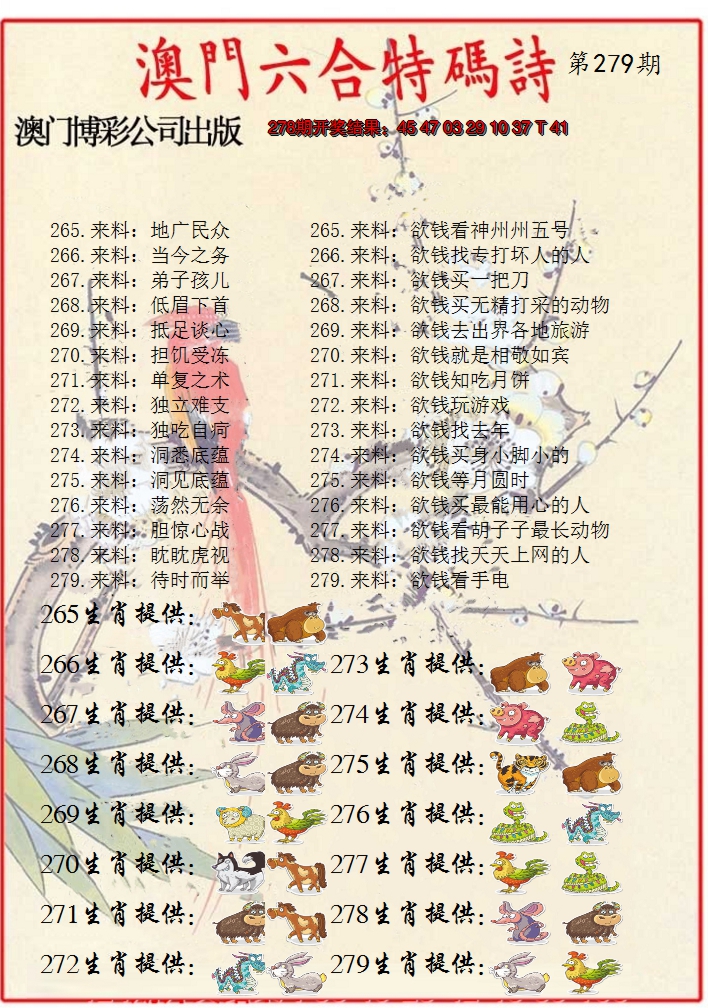 澳門六合特碼詩 第279期
澳门博彩公司出版 278期开奖结果：45 47 03 29 10 37 T 41
265.来料：地广民众 265.来料：欲钱看神州州五号
266.来料：当今之务 266.来料：欲钱找专打坏人的人
267.来料：弟子孩儿 267.来料：欲钱买一把刀
268.来料：低眉下首 268.来料：欲钱买无精打采的动物
269.来料：抵足谈心 269.来料：欲钱去出界各地旅游
270.来料：担饥受冻 270.来料：欲钱就是相敬如宾
271.来料：单复之术 271.来料：欲钱知吃月饼
272.来料：独立难支 272.来料：欲钱玩游戏
273.来料：独吃自疴 273.来料：欲钱找去年
274.来料：洞悉底蕴 274.来料：欲钱买身小脚小的
275.来料：洞见底蕴 275.来料：欲钱等月圆时
276.来料：荡然无余 276.来料：欲钱买最能用心的人
277.来料：胆惊心战 277.来料：欲钱看胡子子最长动物
278.来料：眈眈虎视 278.来料：欲钱找天天上网的人
279.来料：待时而举 279.来料：欲钱看手电
265生肖提供：
266生肖提供： 273生肖提供：
267生肖提供： 274生肖提供：
268生肖提供： 275生肖提供：
269生肖提供： 276生肖提供：
270生肖提供： 277生肖提供：
271生肖提供： 278生肖提供：
272生肖提供： 279生肖提供：